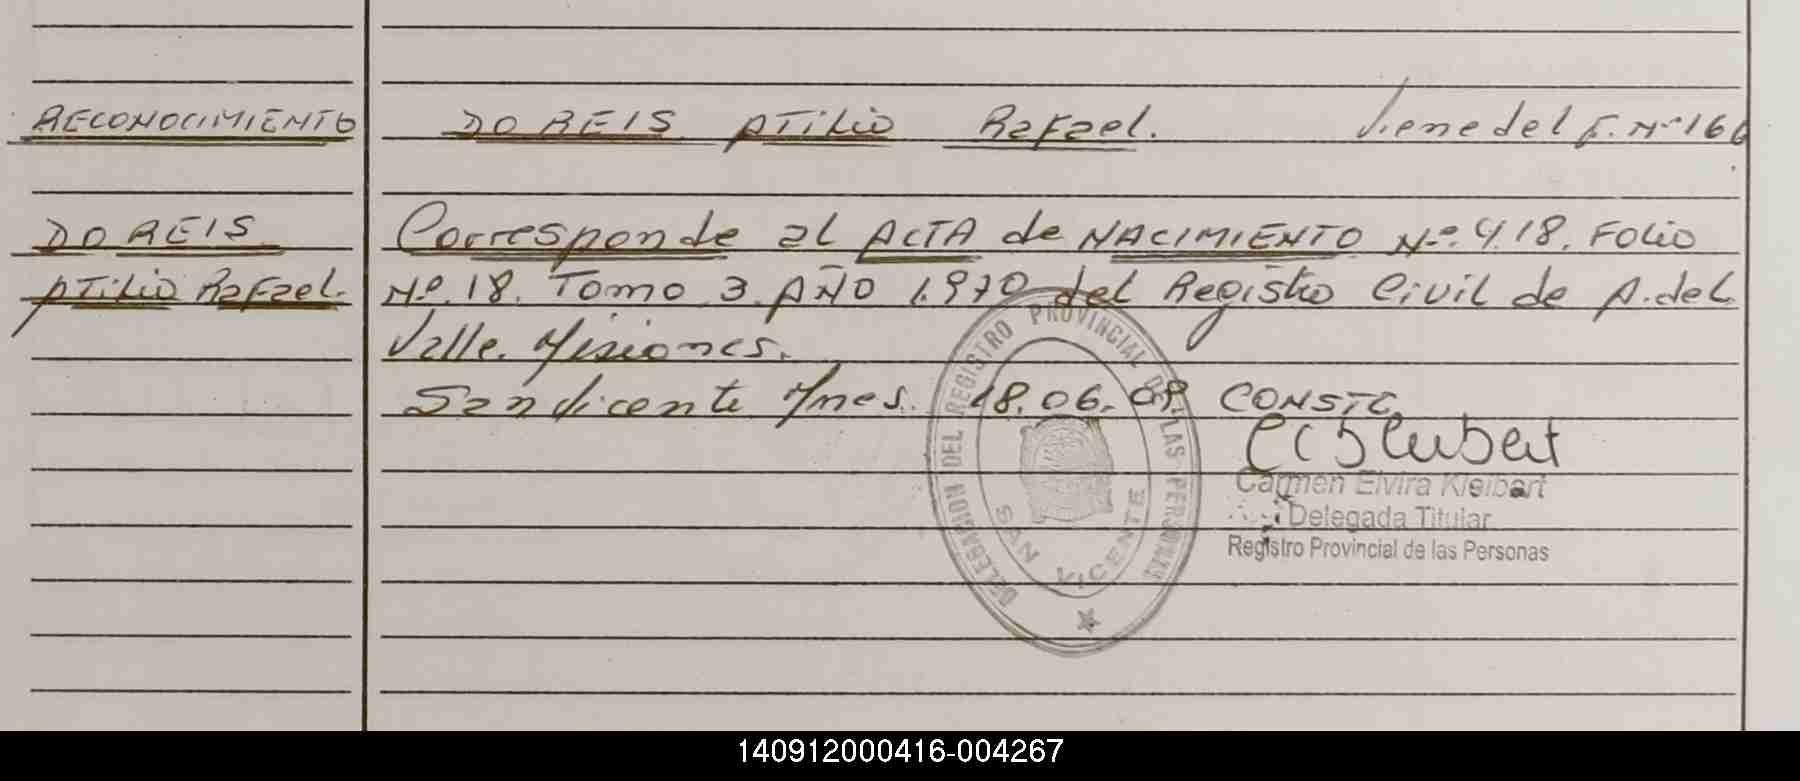 RECONOCIMIENTO
DO REIS ATiLio RaFael. Viene del F. Nº 166
DO REIS
ATiLio RaFael.
Corresponde al ACTA de NACIMIENTO Nº. 418. FOLio
Nº. 18. Tomo 3. AÑO 1.970 del Registro Civil de A. del
Valle. Misiones.
San Vicente Mnes. 18.06.09. CONSTE
Carmen Elvira Kleibert
Delegada Titular
Registro Provincial de las Personas
DELEGACION DEL REGISTRO PROVINCIAL DE LAS PERSONAS
SAN VICENTE
140912000416-004267